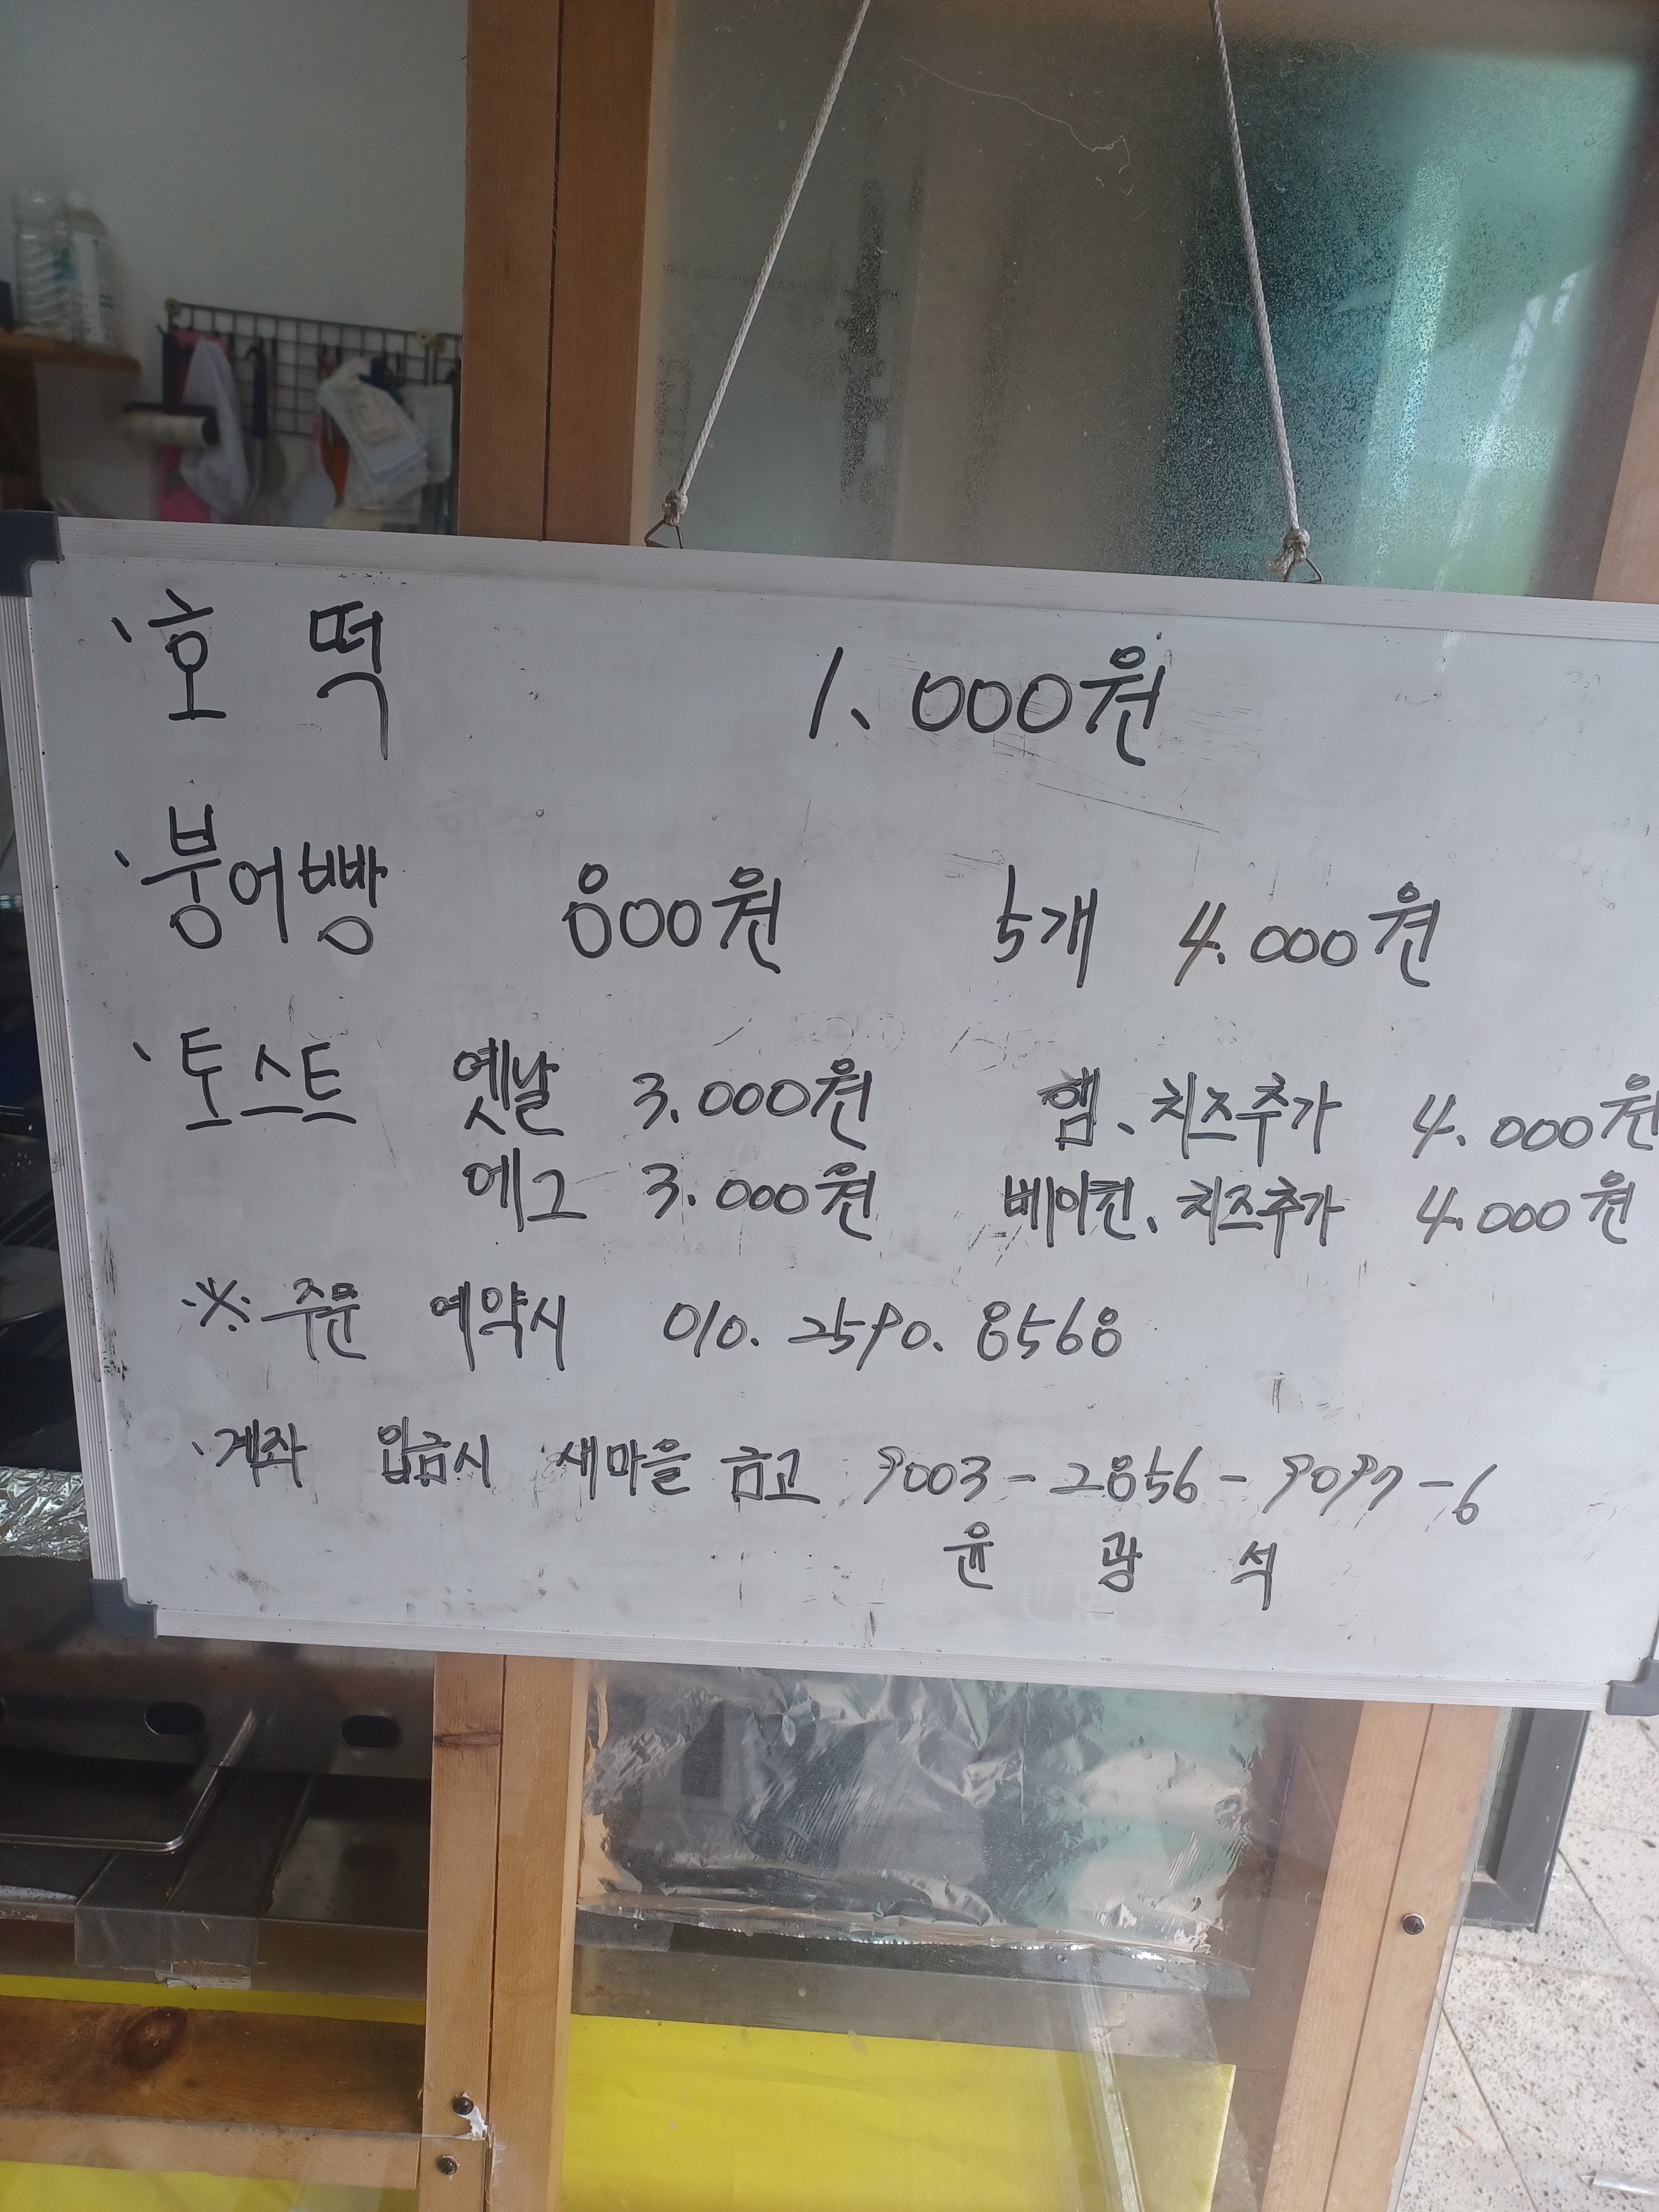 · 호 떡 1.000원
· 붕어빵 800원 5개 4.000원
· 토스트 옛날 3.000원 햄、치즈추가 4.000원
에그 3.000원 베이컨、치즈추가 4.000원
※ 주문 예약시 010. 2590. 8568
· 계좌 입금시 새마을 금고 9003-2856-9097-6
윤 광 석